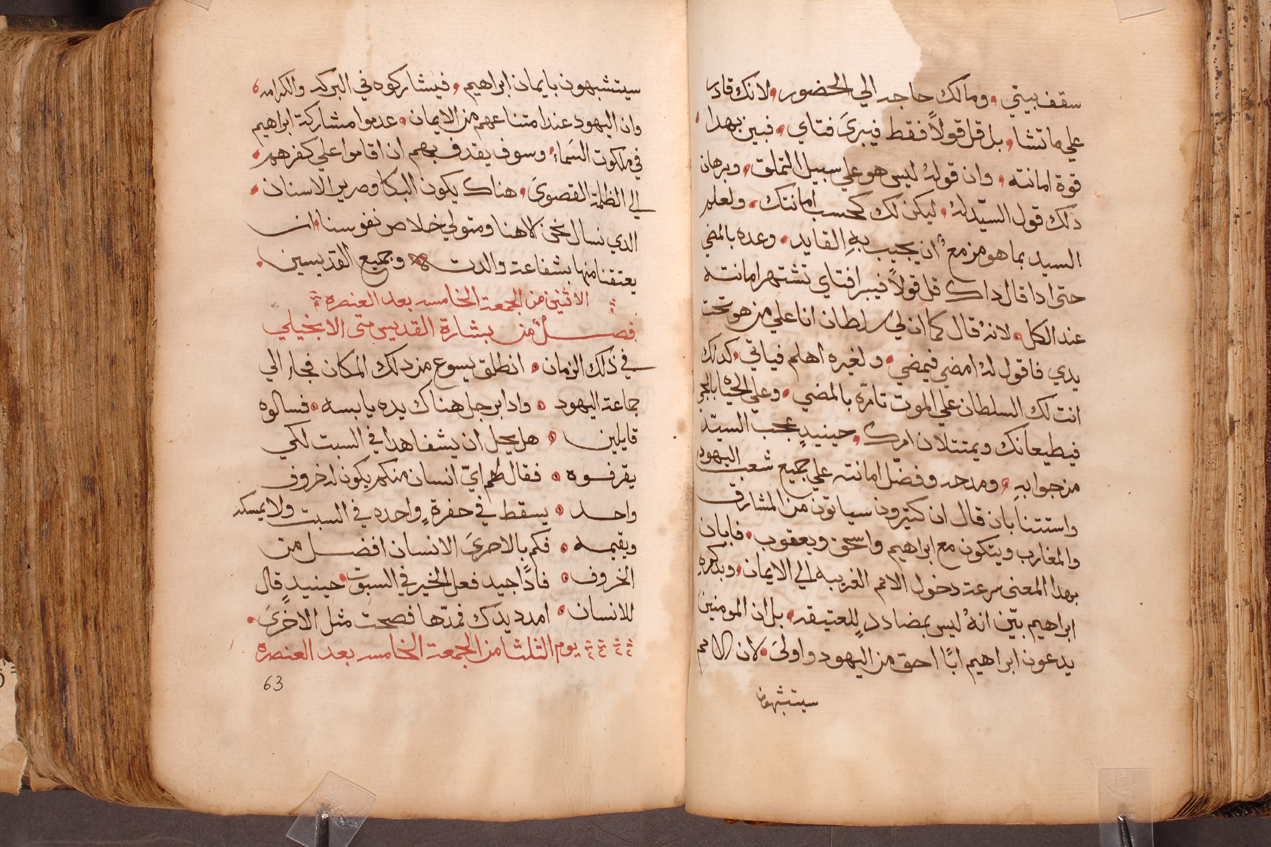 سقف بيتي، ومالك حاجه الي الحضور، لانك قادر
علي ماتشا، بل قل قولاً فقط فيبري فتاي، فبين بهدا
قوة امانته، وان قوله ليس هو علي سبيل التملق، وبرهان
دلك قول السيد له، ليكن لك كحسب امانتك، ولعلم
السيد بما هو مزمع ان يجيب به القايد، وعده بالمضي
حتي ادا قال داك قل قولاً فيبرا فتاي تشتهر امانته
عند الكل، لانه قال كما ان لي سلطان انا علي من هو تحت
يدي فاقول له امضي فيمضي، ولغيره اهلم فياتي، كدلك
انت لك السلطان علي الموت تامره بالمضي، وعلي الحياه بالمجي
فيطيعانك ويمتتلان امرك، حينيدٍ عجب السيد
من جوابه، ومدحه وفضل امانته علي جميع شعب اليهود
واستتنا بان قال ان كتيرون سياتون من المشارق
والمغارب ويتكون مع ابراهيم واسحق ويعقوب، فابان
بهدا المعني سرعة دخول الامم الغربيه الي الايمان، وبدكره
ابراهيم بيّن انه ليس بمضادد للعتيقه، بل ان المومنين
يدعون ابراهيم اباً احق من اليهود واولي، لان الامم
سيتشبهون
سيتشبهون بايمان ابراهيم، فيشاركوه في البركه والكرامه،
وان اليهود عند امتناعهم من الايمان، عدموا مشاركة ابراهيم
في ملكوت السماء، وسوف يقدف بهم ان اقاموا علي كفرهم،
الي الظلمة القصوي، هناك يكون البكا وصرير الاسنان،
الدي نسال نحن لاهنا ومتولي خلاص نفوسنا، ان
يعتقنا منها بشفاعة والدت وجميع القديسين،
الاتنين من الجمعة الخامسه بعد العنصره
فصل من بشارة القديس متي الانجيلي
في ذلك الزمان، انطلق يسوع من دلك المكان فجاء الي
جماعة اليهود، وادا برجل هناك يده يابسه، فسالوه
قايلين، هل يحل ان يشفا هدا في السبت لكي
يقرفوه، فقال لهم اي انسان منكم يكون له خروف
واحد، يسقط في حفرةٍ واحده في السبت ولا يمسكه
ويقيمه، فكم بالاحري الانسان افضل من
الخروف، فاذاً جيد فعل الخير في السبت، حينيدٍ قال
للانسان، امدد يدك فمدها فصحت مثل الاخري،
يوم الثلثا من الجمعة الخامسه بعد العنصره
63